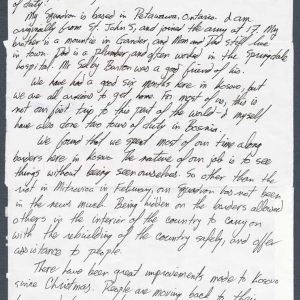 of duty!
My squadron is based in Petawawa, Ontario. I am
originally from St. John's, and joined the army at 17. My
brother is a mountie in Gander, and Mom and Dad still live
in town. Dad is a plumber and often works in the Springdale
hospital. Mr. Selby Burton was a good friend of his.
We have had a good six months here in Kosovo, but
we are all anxious to get home. For most of us, this is
not our first trip to this part of the world - I myself
have also done two tours of duty in Bosnia.
We found that we spend most of our time along
borders here in Kosovo. The nature of our job is to see
things without being seen ourselves. So other than the
riot in Mitrovica in February, our squadron has not been
in the news much. Being hidden on the borders allowed
others in the interior of the country to carry on
with the rebuilding of the country safely and offer
assistance to people.
There have been great improvements made to Kosovo
since Christmas. People are moving back to their